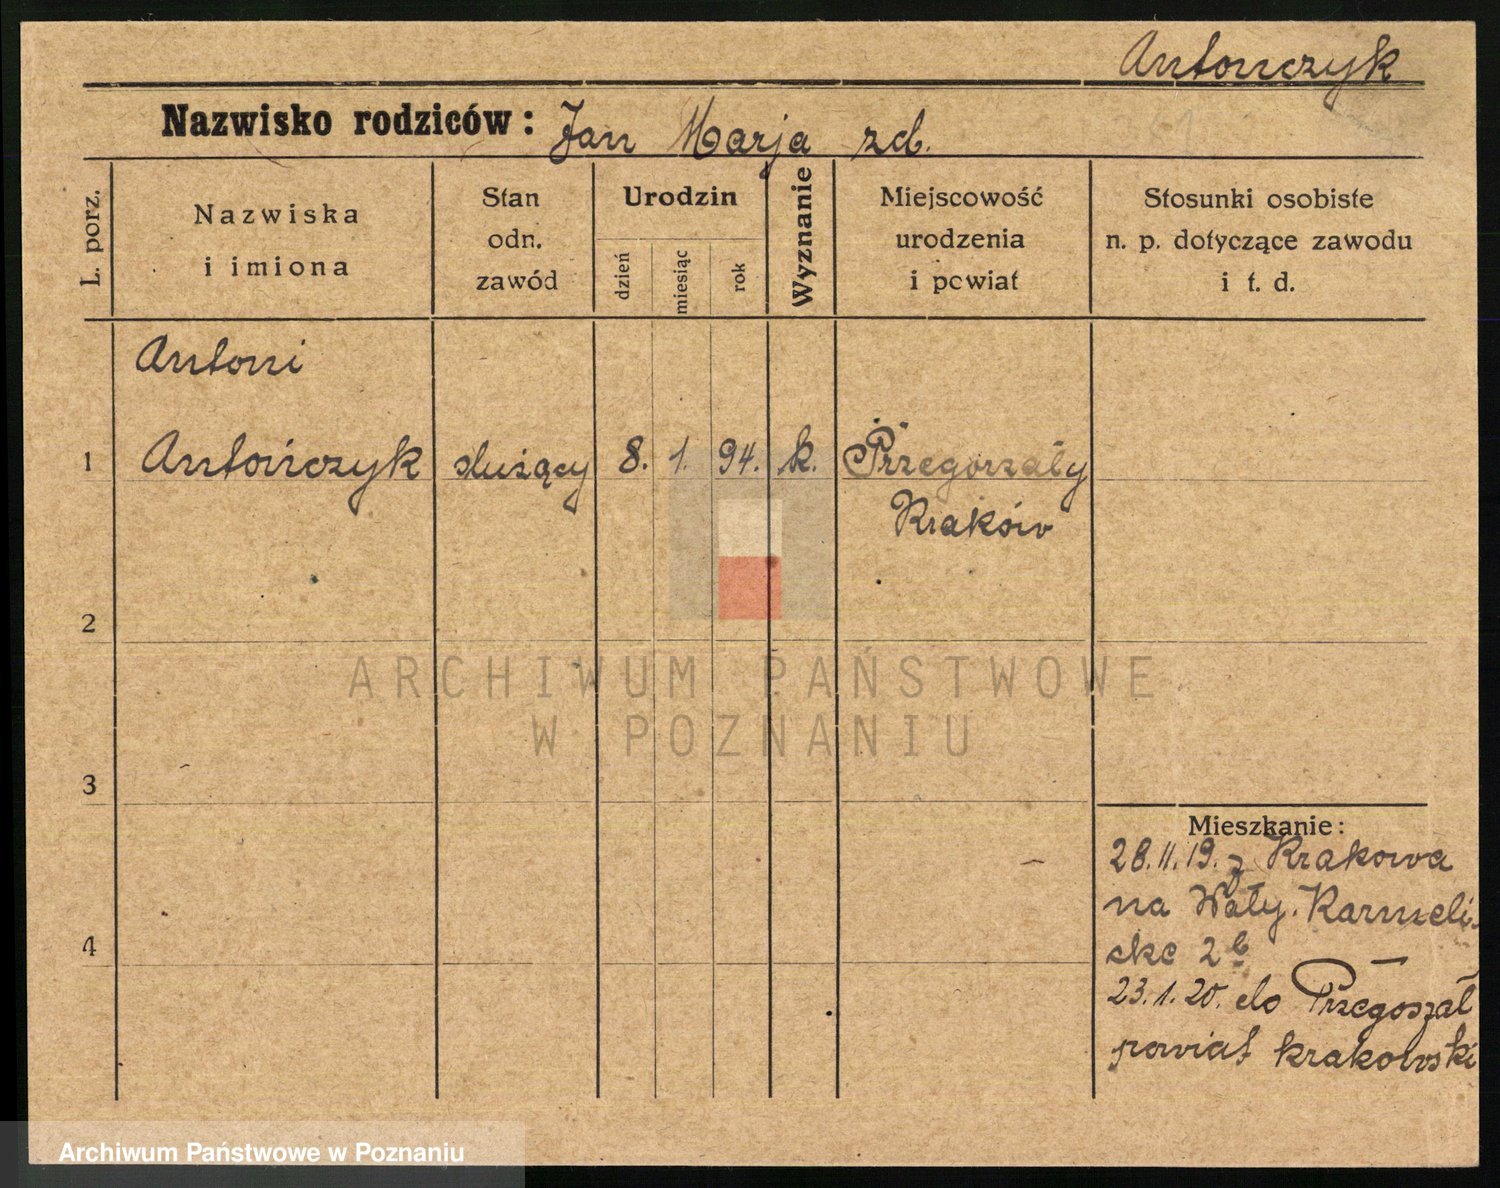 Antonczyk
Nazwisko rodziców: Jan Marja zd.
L. porz.
Nazwiska
i imiona
Stan
odn.
zawód
Urodzin
dzień
miesiąc
rok
Wyznanie
Miejscowość
urodzenia
i powiat
Stosunki osobiste
n. p. dotyczące zawodu
i t. d.
Antoni
1 Antończyk służący 8. 1. 94. k. Przegorzały
Kraków
2
3
4
Mieszkanie:
28.11.19. z Krakowa
na Wały. Karmeli
ske 2 b
23.1.20. do Przegoszał
powiat krakowski
ARCHIWUM PAŃSTWOWE
W POZNANIU
Archiwum Państwowe w Poznaniu